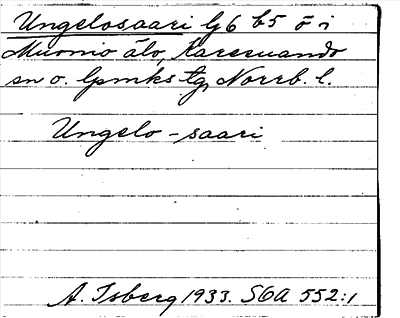 Ungelosaari lg 6 b5 ö i
Muonio älv, Karesuando
sn o. lpmks tg, Norrb. l.
Ungelo-saari
A. Isberg 1933. SOA 552:1